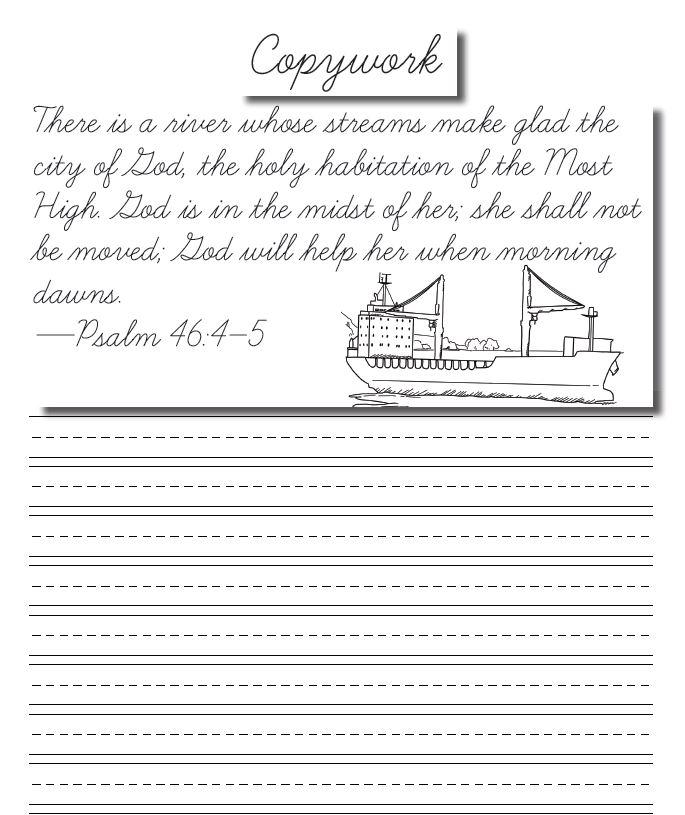 Copywork
There is a river whose streams make glad the
city of God, the holy habitation of the Most
High. God is in the midst of her; she shall not
be moved; God will help her when morning
dawns.
—Psalm 46:4–5